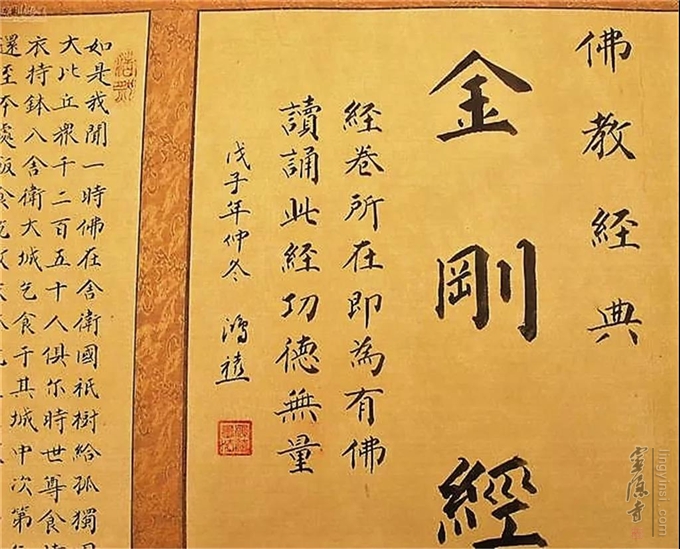 佛教經典
金剛經
經卷所在即為有佛
讀誦此經功德無量
戊子年仲冬 鴻
如是我聞一時佛在舍衛國祇樹給孤獨
大比丘眾千二百五十人俱尔時世尊食
衣持鉢入舍衛大城乞食于其城中次第
還至本處飯食
lingyinsi.com